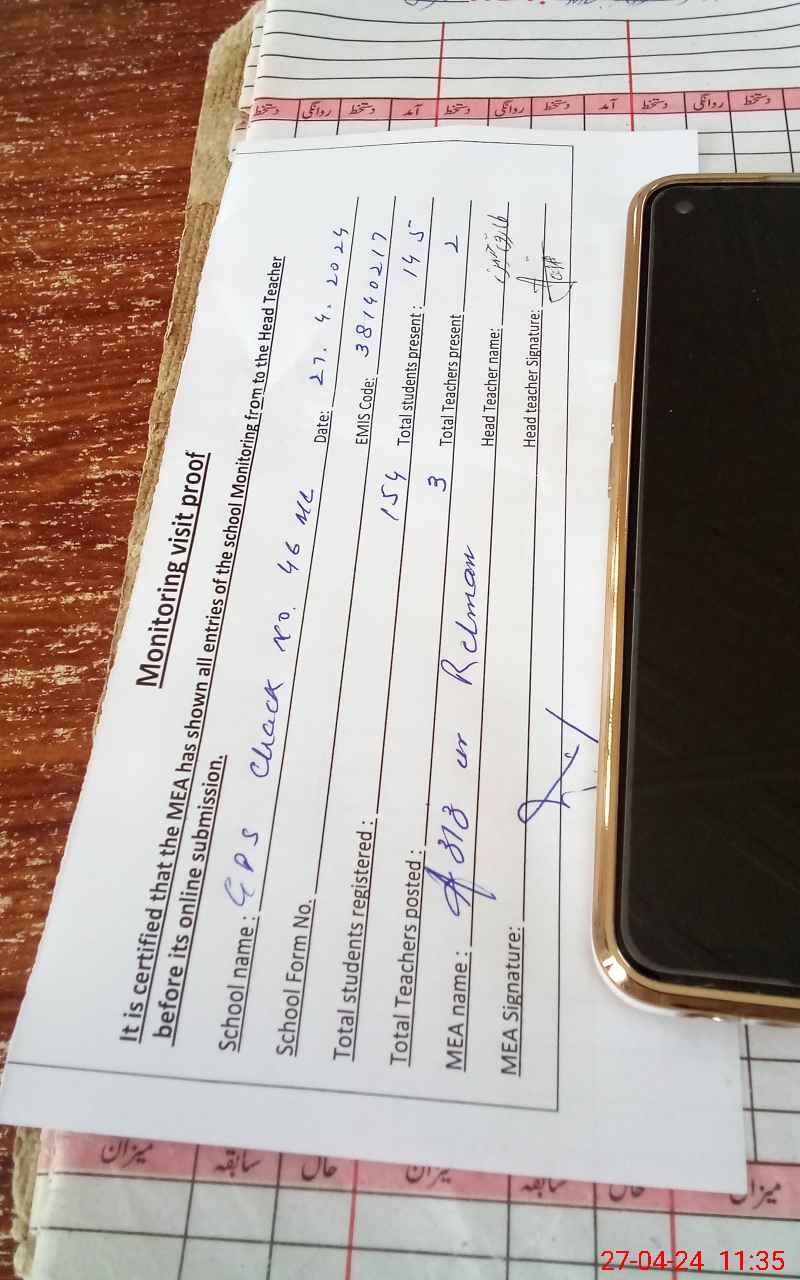 دستخط روانگی دستخط آمد دستخط روانگی دستخط آمد دستخط روانگی دستخط
Monitoring visit proof
It is certified that the MEA has shown all entries of the school Monitoring from to the Head Teacher
before its online submission.
School name: GPS Chack no. 46 ML Date: 27. 4. 2024
School Form No. EMIS Code: 38140217
Total students registered: 154 Total students present: 145
Total Teachers posted: 3 Total Teachers present 2
MEA name: ur Rehman Head Teacher name:
MEA Signature: Head teacher Signature:
میزان سابقہ حال میزان سابقہ حال میزان
27-04-24 11:35